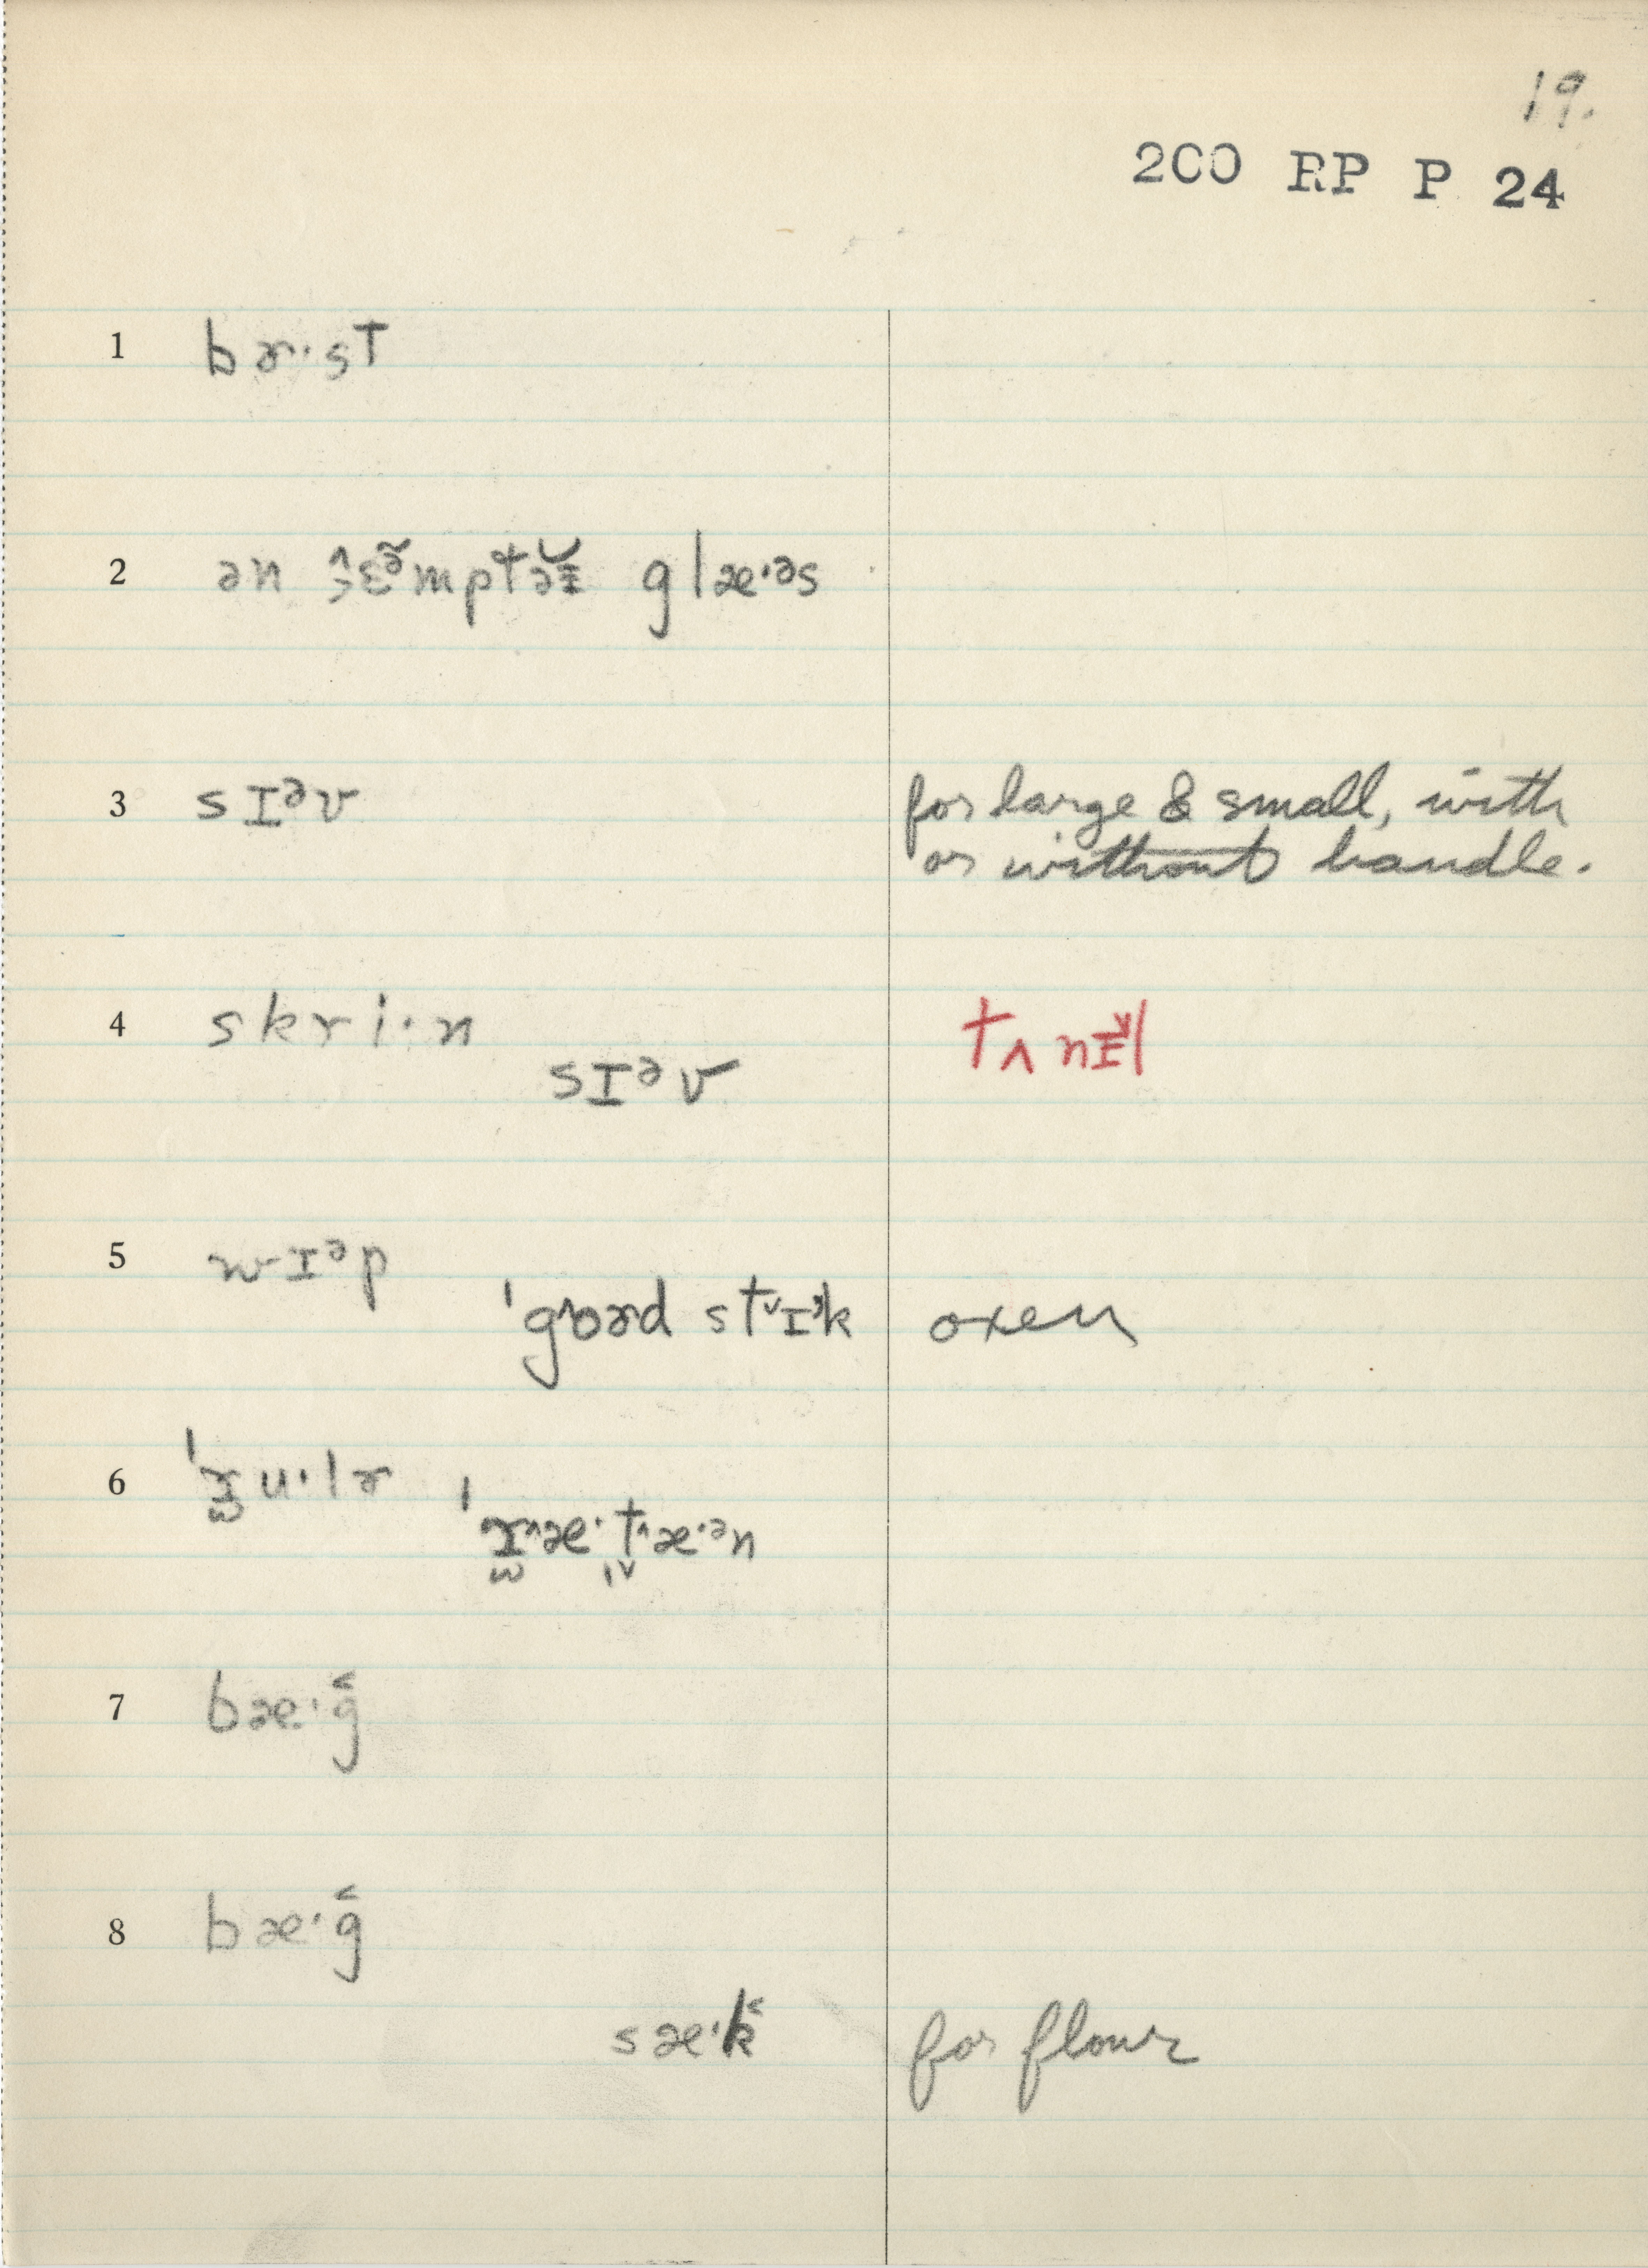 19.
2CO RP P 24
1 bɚ·st
2 ən ɛə̃mptəɪ̆ glæ·əs
3 sɪᵊv for large & small, with
or without handle.
4 skri·n tʌnɪl
sɪᵊv
5 wɪᵊp
ˈgoɚd stɪᵊk oxen
6 ˈru·lɚ
ˈræ·tæ·ᵊn
7 bæ·ĝ
8 bæ·ĝ
sæ·k̂ for flour